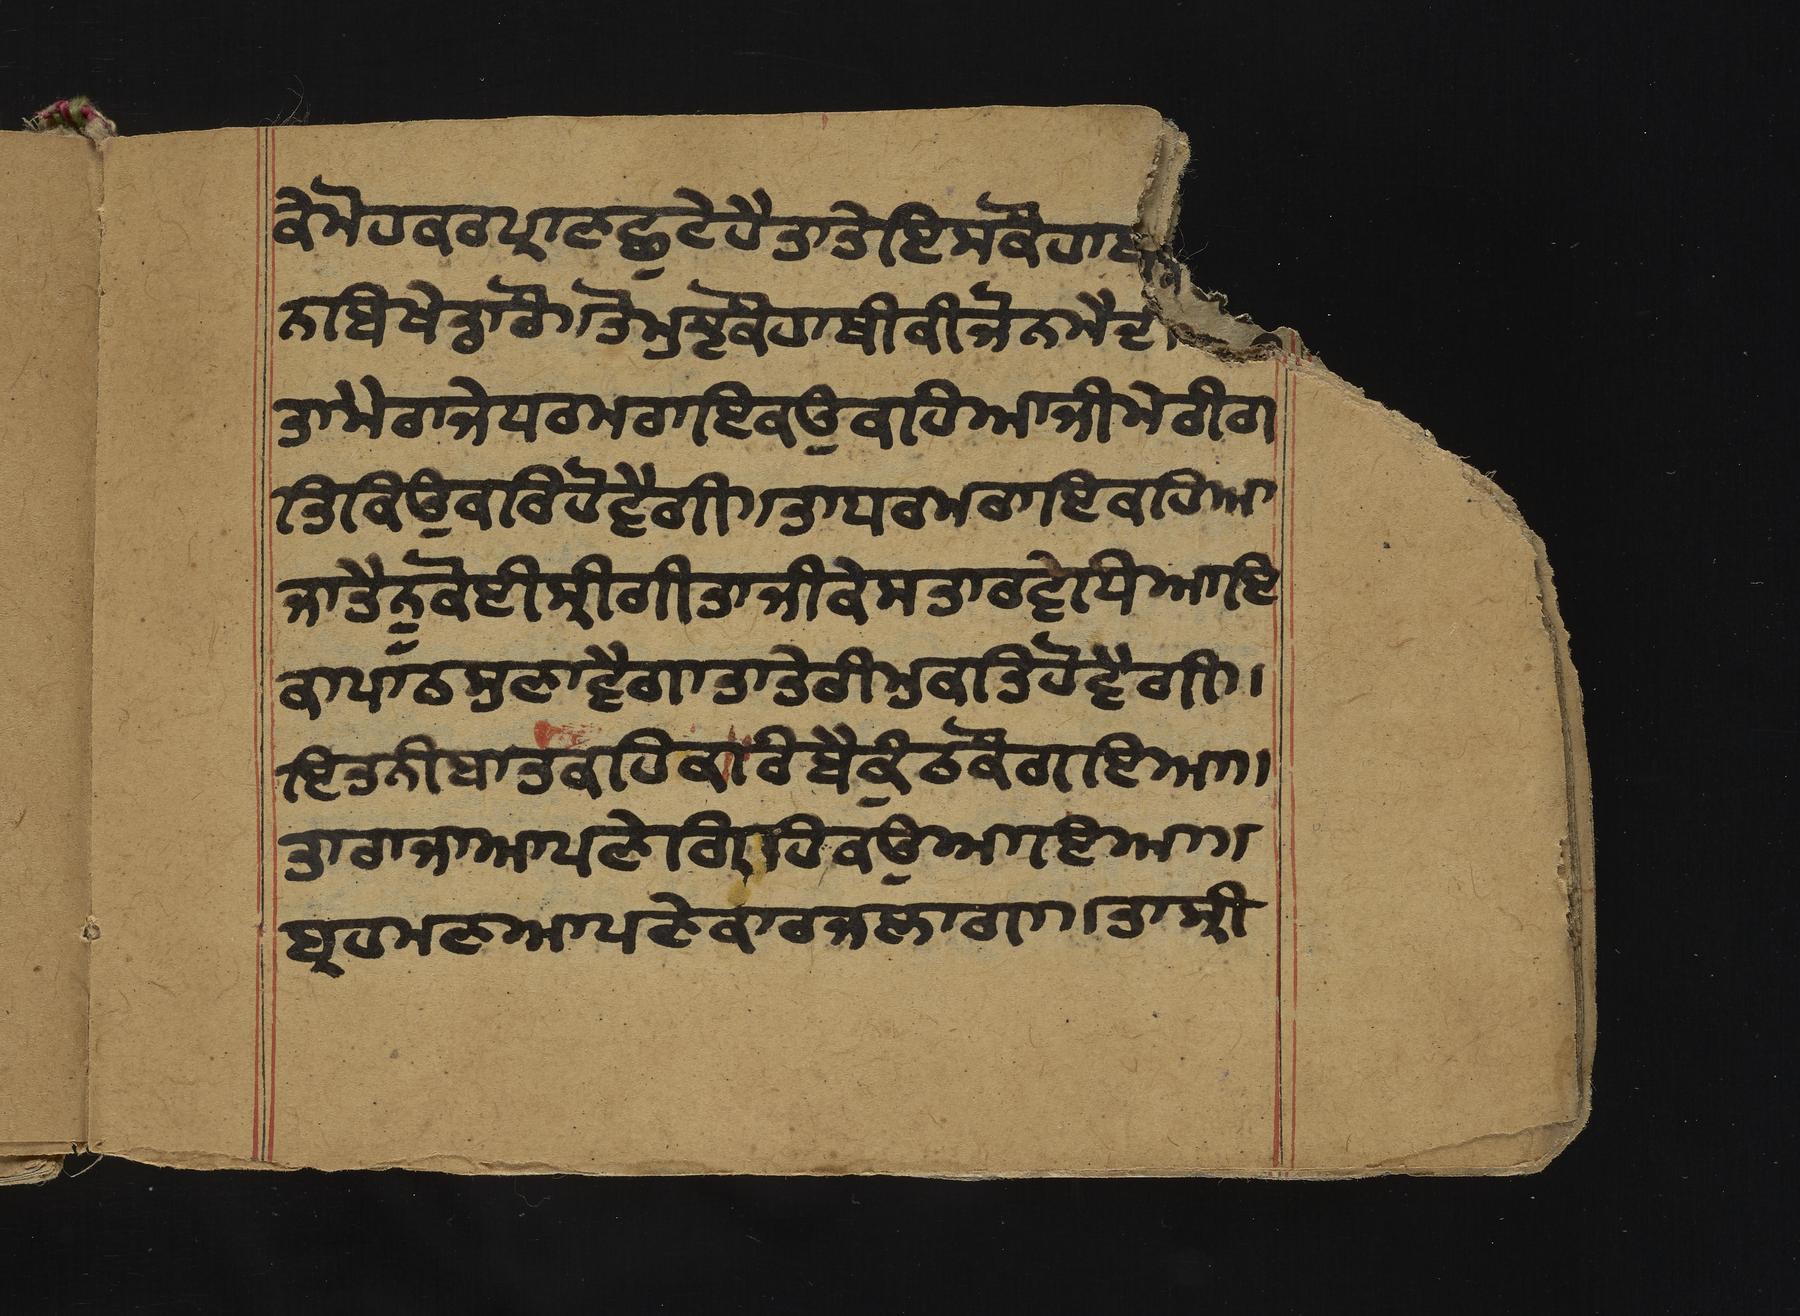 ਕੇਮੋਹਕਰਪ੍ਰਾਣਛੁਟੇਹੈਤਾਤੇਇਸਕੌਹਾਥੀ
ਨਾਬਿਖੇਤ੍ਹਾਰੌ॥ਤੋਅਸ੍ਟਕੌਹਾਥੀਕੀਜੋਨਮੈਦੀ
ਤਾਮੈਰਾਜੇਧਰਮਰਾਇਕਉਕਹਿਆਜੀਮੇਰੀਗ
ਤਿਕਿਉਕਰਿਹੋਵੈਗੀ॥ਤਾਧਰਮਰਾਇਕਹਿਆ
ਜਾਤੈਨੂਕੋਈਸ੍ਰੀਗੀਤਾਜੀਕੇਸਤਾਰਵੇਧਿਆਇ
ਕਾਪਾਠਸੁਣਾਵੈਗਾਤਾਤੇਰੀਮੁਕਤਿਹੋਵੈਗੀ॥
ਇਤਨੀਬਾਤਕਹਿਕਰਿਬੈਕੁੰਠਕੌਗਇਆ॥
ਤਾਰਾਜਾਆਪਣੇਗ੍ਰਿਹਿਕਉਆਇਆ॥
ਬ੍ਰਹਮਣਆਪਣੇਕਾਰਜਲਾਗਾ॥ਤਾਸ੍ਰੀ